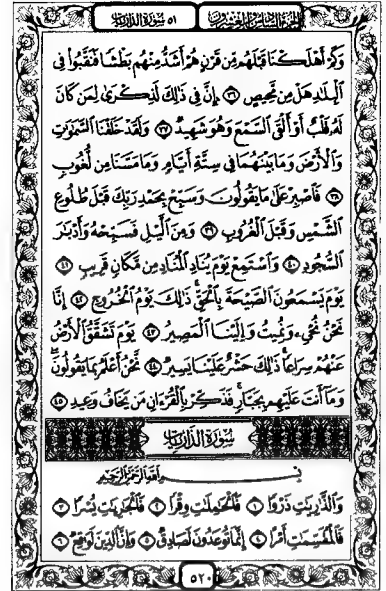 الجزء السادس والعشرون ٥١ سورة الذاريات
وَكَمْ أَهْلَكْنَا قَبْلَهُم مِّن قَرْنٍ هُمْ أَشَدُّ مِنْهُم بَطْشًا فَنَقَّبُوا۟ فِى
ٱلْبِلَـٰدِ هَلْ مِن مَّحِيصٍ ٣٦ إِنَّ فِى ذَٰلِكَ لَذِكْرَىٰ لِمَن كَانَ
لَهُۥ قَلْبٌ أَوْ أَلْقَى ٱلسَّمْعَ وَهُوَ شَهِيدٌ ٣٧ وَلَقَدْ خَلَقْنَا ٱلسَّمَـٰوَٰتِ
وَٱلْأَرْضَ وَمَا بَيْنَهُمَا فِى سِتَّةِ أَيَّامٍ وَمَا مَسَّنَا مِن لُّغُوبٍ
٣٨ فَٱصْبِرْ عَلَىٰ مَا يَقُولُونَ وَسَبِّحْ بِحَمْدِ رَبِّكَ قَبْلَ طُلُوعِ
ٱلشَّمْسِ وَقَبْلَ ٱلْغُرُوبِ ٣٩ وَمِنَ ٱلَّيْلِ فَسَبِّحْهُ وَأَدْبَـٰرَ
ٱلسُّجُودِ ٤٠ وَٱسْتَمِعْ يَوْمَ يُنَادِ ٱلْمُنَادِ مِن مَّكَانٍ قَرِيبٍ ٤١
يَوْمَ يَسْمَعُونَ ٱلصَّيْحَةَ بِٱلْحَقِّ ذَٰلِكَ يَوْمُ ٱلْخُرُوجِ ٤٢ إِنَّا
نَحْنُ نُحْىِۦ وَنُمِيتُ وَإِلَيْنَا ٱلْمَصِيرُ ٤٣ يَوْمَ تَشَقَّقُ ٱلْأَرْضُ
عَنْهُمْ سِرَاعًا ذَٰلِكَ حَشْرٌ عَلَيْنَا يَسِيرٌ ٤٤ نَّحْنُ أَعْلَمُ بِمَا يَقُولُونَ
وَمَآ أَنتَ عَلَيْهِم بِجَبَّارٍ فَذَكِّرْ بِٱلْقُرْءَانِ مَن يَخَافُ وَعِيدِ ٤٥
سُورَةُ الذَّارِيَاتِ
بِسْمِ ٱللَّهِ ٱلرَّحْمَـٰنِ ٱلرَّحِيمِ
وَٱلذَّٰرِيَـٰتِ ذَرْوًا ١ فَٱلْحَـٰمِلَـٰتِ وِقْرًا ٢ فَٱلْجَـٰرِيَـٰتِ يُسْرًا ٣
فَٱلْمُقَسِّمَـٰتِ أَمْرًا ٤ إِنَّمَا تُوعَدُونَ لَصَادِقٌ ٥ وَإِنَّ ٱلدِّينَ لَوَٰقِعٌ ٦
٥٢٠